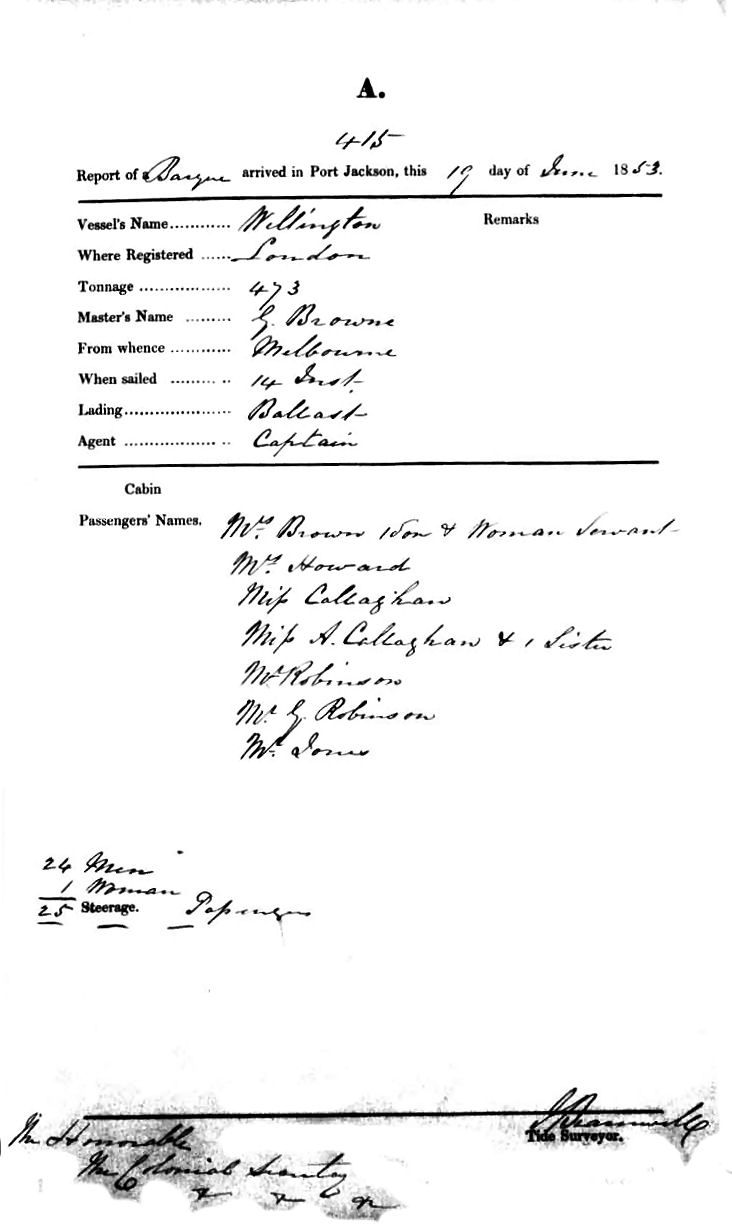 A.
415
Report of a Barque arrived in Port Jackson, this 19 day of June 1853.
Vessel's Name............ Wellington Remarks
Where Registered ...... London
Tonnage .................. 473
Master's Name ......... G. Browne
From whence ............ Melbourne
When sailed ......... .. 14 Inst.
Lading..................... Ballast
Agent .................. .. Captain
Cabin
Passengers' Names. Mrs. Brown 1 Son & Woman Servant
Howard
Miss Callaghan
Miss A. Callaghan & 1 Sister
Mr. Robinson
Mr. G. Robinson
Mr. Jones
24 Men
1 Woman
25 Steerage. Passengers
Tide Surveyor.
The Honorable
The Colonial Secretary